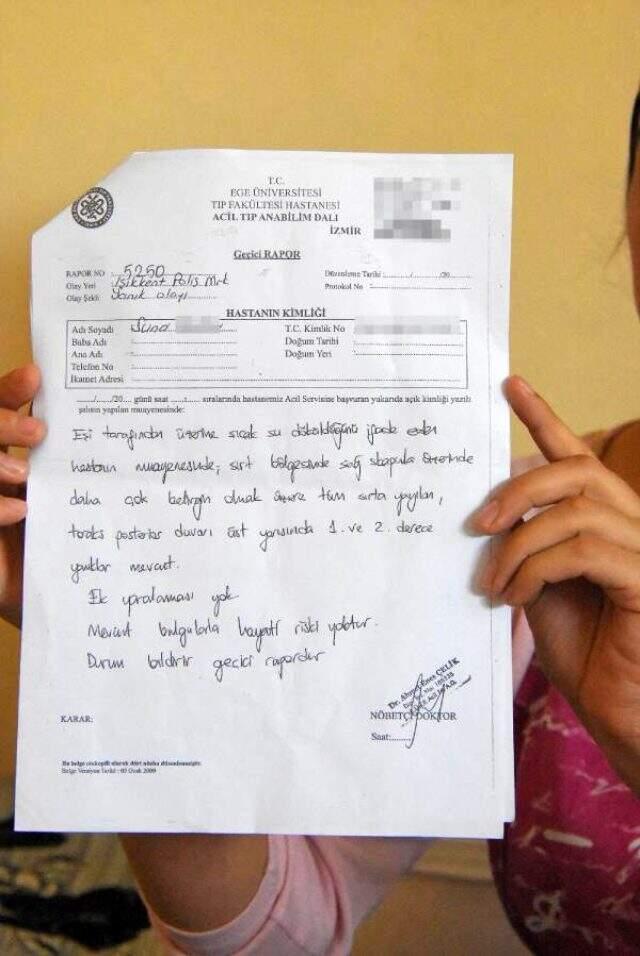 T.C.
EGE ÜNİVERSİTESİ
TIP FAKÜLTESİ HASTANESİ
ACİL TIP ANABİLİM DALI
İZMİR
Geçici RAPOR
RAPOR NO 5250
Düzenleme Tarihi :....../....../20....
Olay Yeri Işıkkent Polis Mrk
Protokol No :
Olay Şekli Yanık olayı
HASTANIN KİMLİĞİ
Adı Soyadı : Suna
T.C. Kimlik No :
Baba Adı :
Doğum Tarihi :
Ana Adı :
Doğum Yeri :
Telefon No :
İkamet Adresi :
....../....../20.... günü saat ......:...... sıralarında hastanemiz Acil Servisine başvuran yukarıda açık kimliği yazılı
şahsın yapılan muayenesinde:
Eşi tarafından üzerine sıcak su döküldüğünü ifade eden
hastanın muayenesinde; sırt bölgesinde sağ skapula üzerinde
daha çok belirgin olmak üzere tüm sırta yayılan,
toraks posterior duvarı üst yarısında 1. ve 2. derece
yanıklar mevcut.
Ek yaralanması yok
Mevcut bulgularla hayati riski yoktur.
Durum bildirir geçici rapordur
Dr. Ahmet Enes ÇELİK
KARAR:
NÖBETÇİ DOKTOR
Saat:........
Bu belge otokopili olarak dört nüsha düzenlenmiştir.
Belge Versiyon Tarihi : 05 Ocak 2009